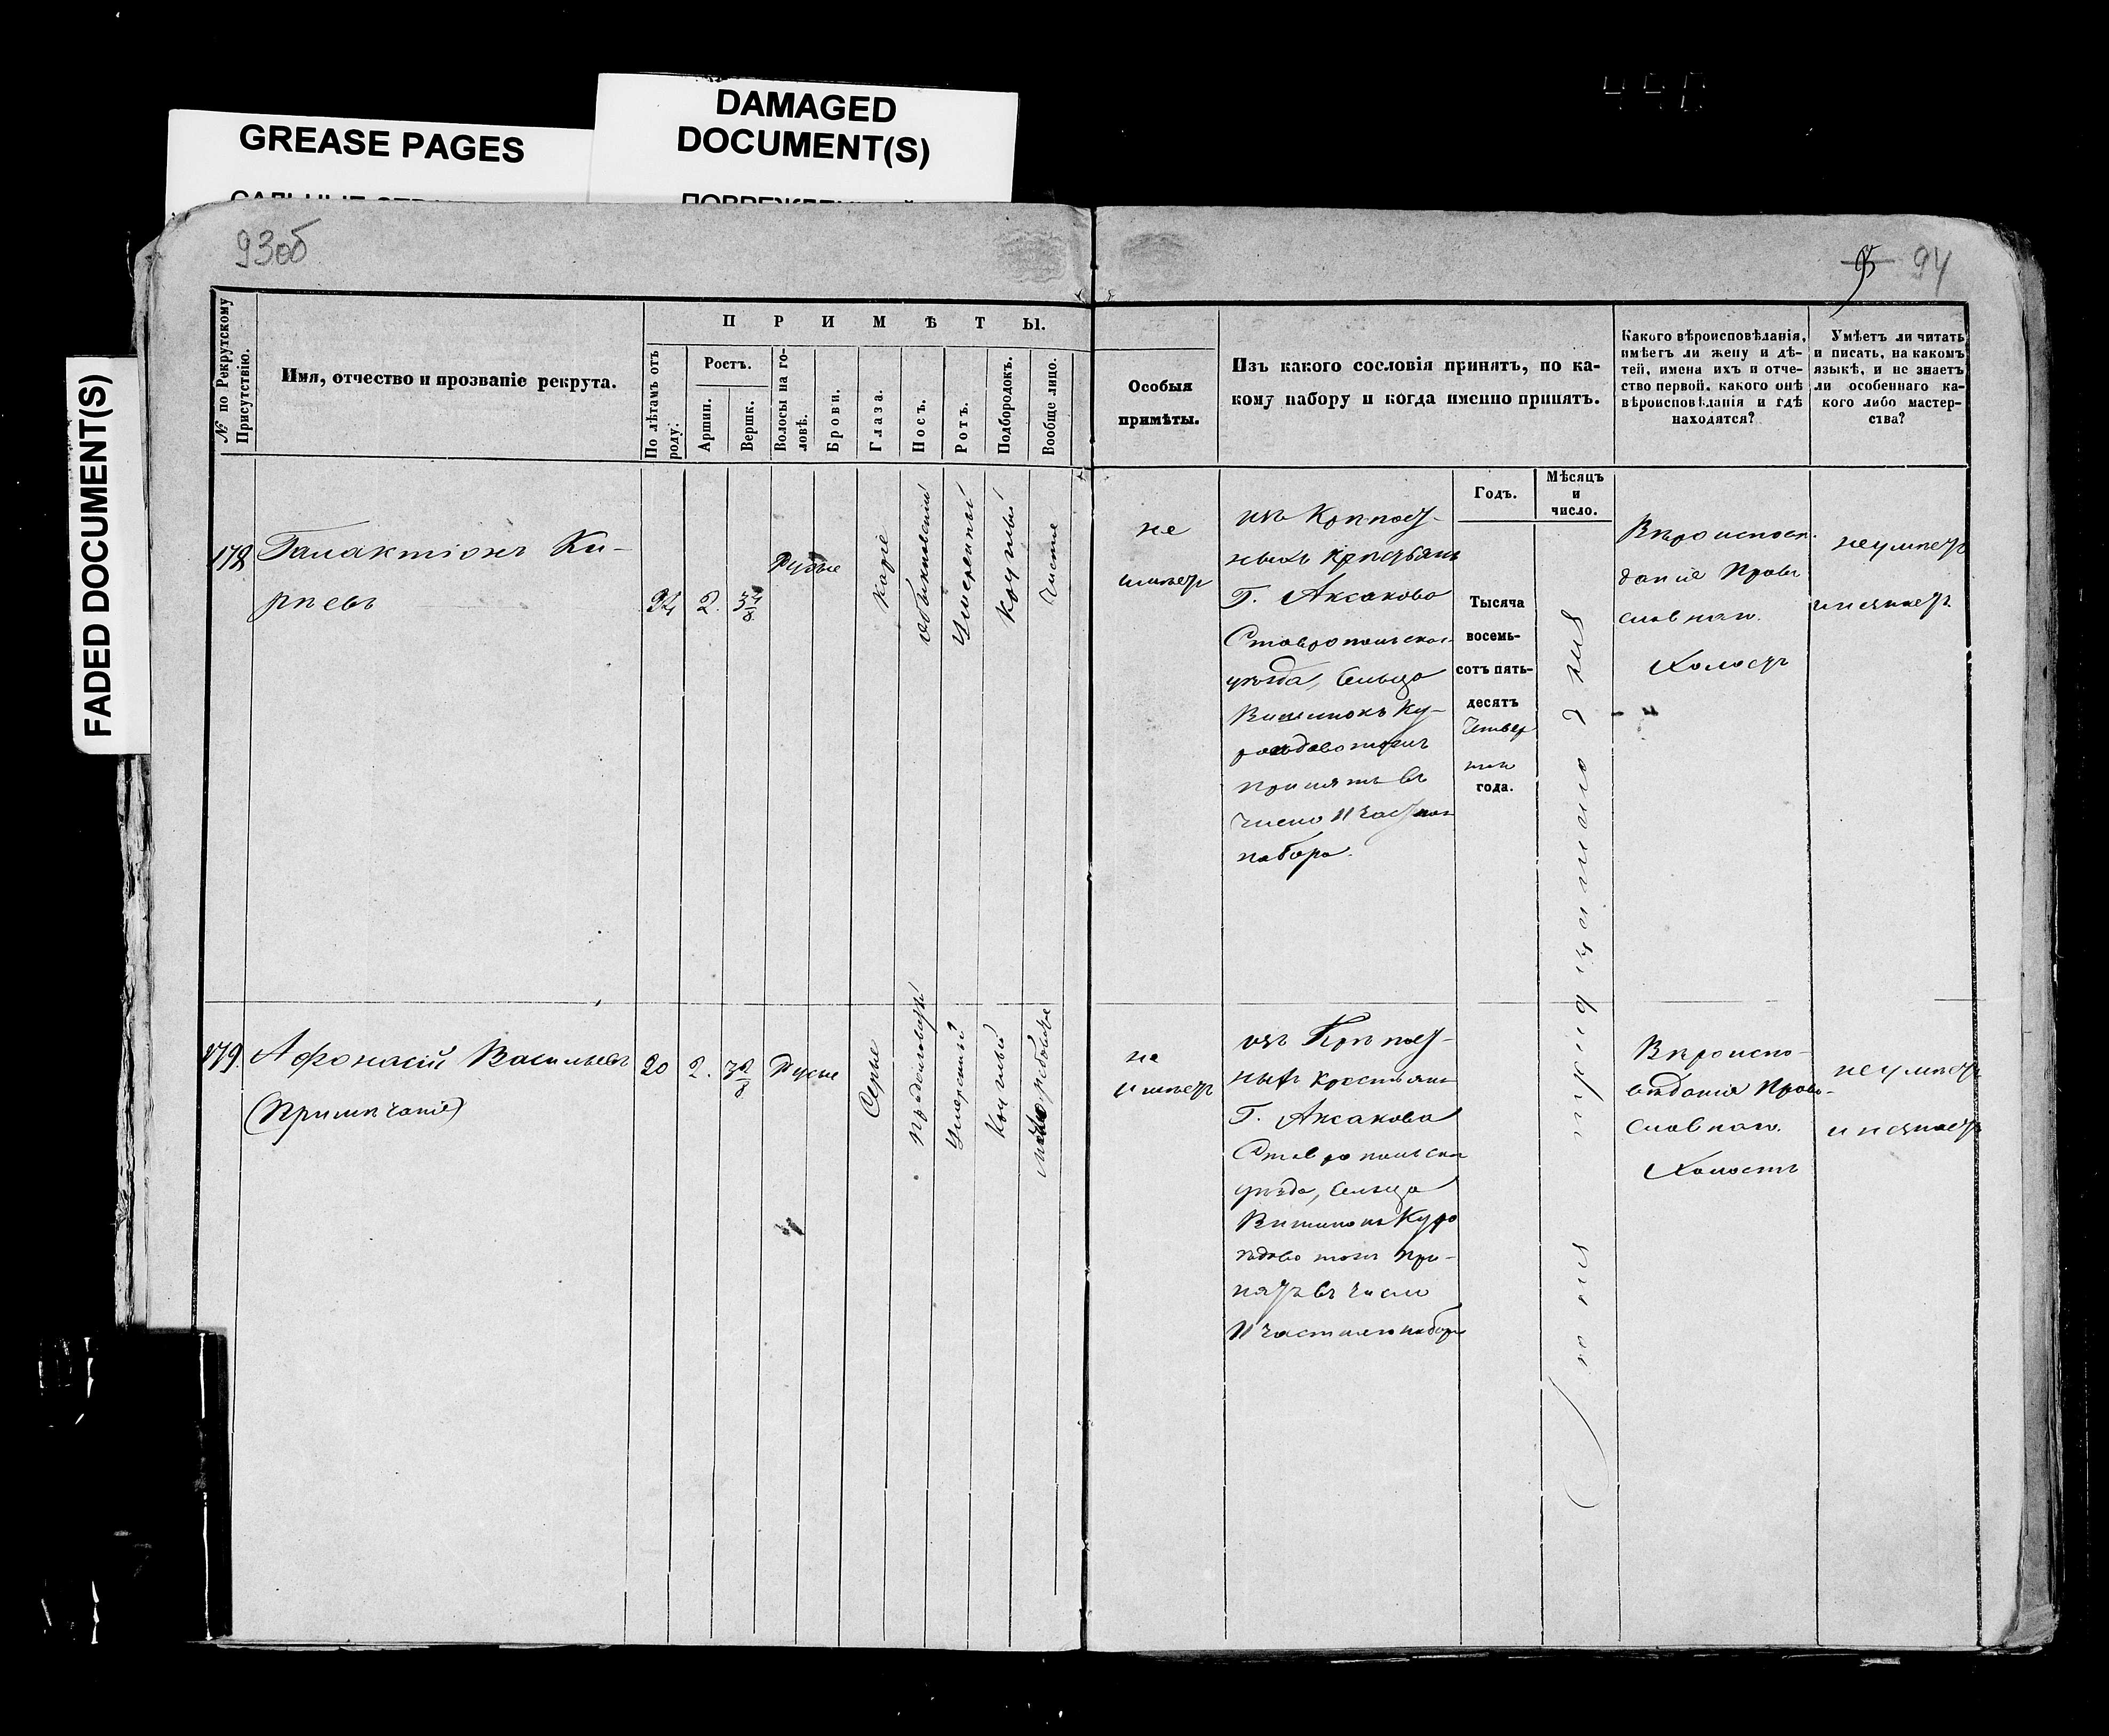 GREASE PAGES
DAMAGED
DOCUMENT(S)
FADED DOCUMENT(S)
93об
94
№ по Рекрутскому
Присутствію.
Имя, отчество и прозваніе рекрута.
П Р И М Ѣ Т Ы.
По лѣтамъ отъ
роду.
Ростъ.
Аршин.
Вершк.
Волосы на го-
ловѣ.
Брови.
Глаза.
Носъ.
Ротъ.
Подбородокъ.
Вообще лицо.
Особыя
примѣты.
Изъ какого сословія принятъ, по ка-
кому набору и когда именно принятъ.
Какого вѣроисповѣданія,
имѣетъ ли жену и дѣ-
тей, имена ихъ и отче-
ство первой, какого онѣ
вѣроисповѣданія и гдѣ
находятся?
Умѣетъ ли читать
и писать, на какомъ
языкѣ, и не знаетъ
ли особеннаго ка-
кого либо мастер-
ства?
Годъ.
Мѣсяцъ
и
число.
178
Галактіонъ Ки-
рѣевъ
2.
3 4/8
Русые
Каріе
обыкновенный
Умеренный
Круглый
Чистое
не
имѣетъ
изъ Крѣпост-
ныхъ Крестьянъ
Г. Аксакова
Ставропольскаго
уѣзда, Сельца
Вишенокъ Ку-
роѣдово тожъ
принятъ въ
число 11 частнаго
набора.
Тысяча
восемь-
сотъ пять-
десятъ
Четвер
таго
года.
тридцатаго дня
Іюня
Вѣроиспов.
данія Прав.
славнаго.
Холостъ
неумѣетъ
179.
Афонасій Васильевъ
(Примѣчаніе)
20
2.
3 2/8
Русые
Серые
продолговатый
Умеренный
Круглый
не
имѣетъ
изъ Крѣпост-
ныхъ крестьянъ
Г. Аксакова
Ставропольска
уѣзда, Сельца
Вишенокъ Куро
ѣдово тожъ при-
нятъ въ число
11 частнаго набора
Вѣроиспо-
вѣданія Право-
славнаго.
Холостъ
неумѣетъ